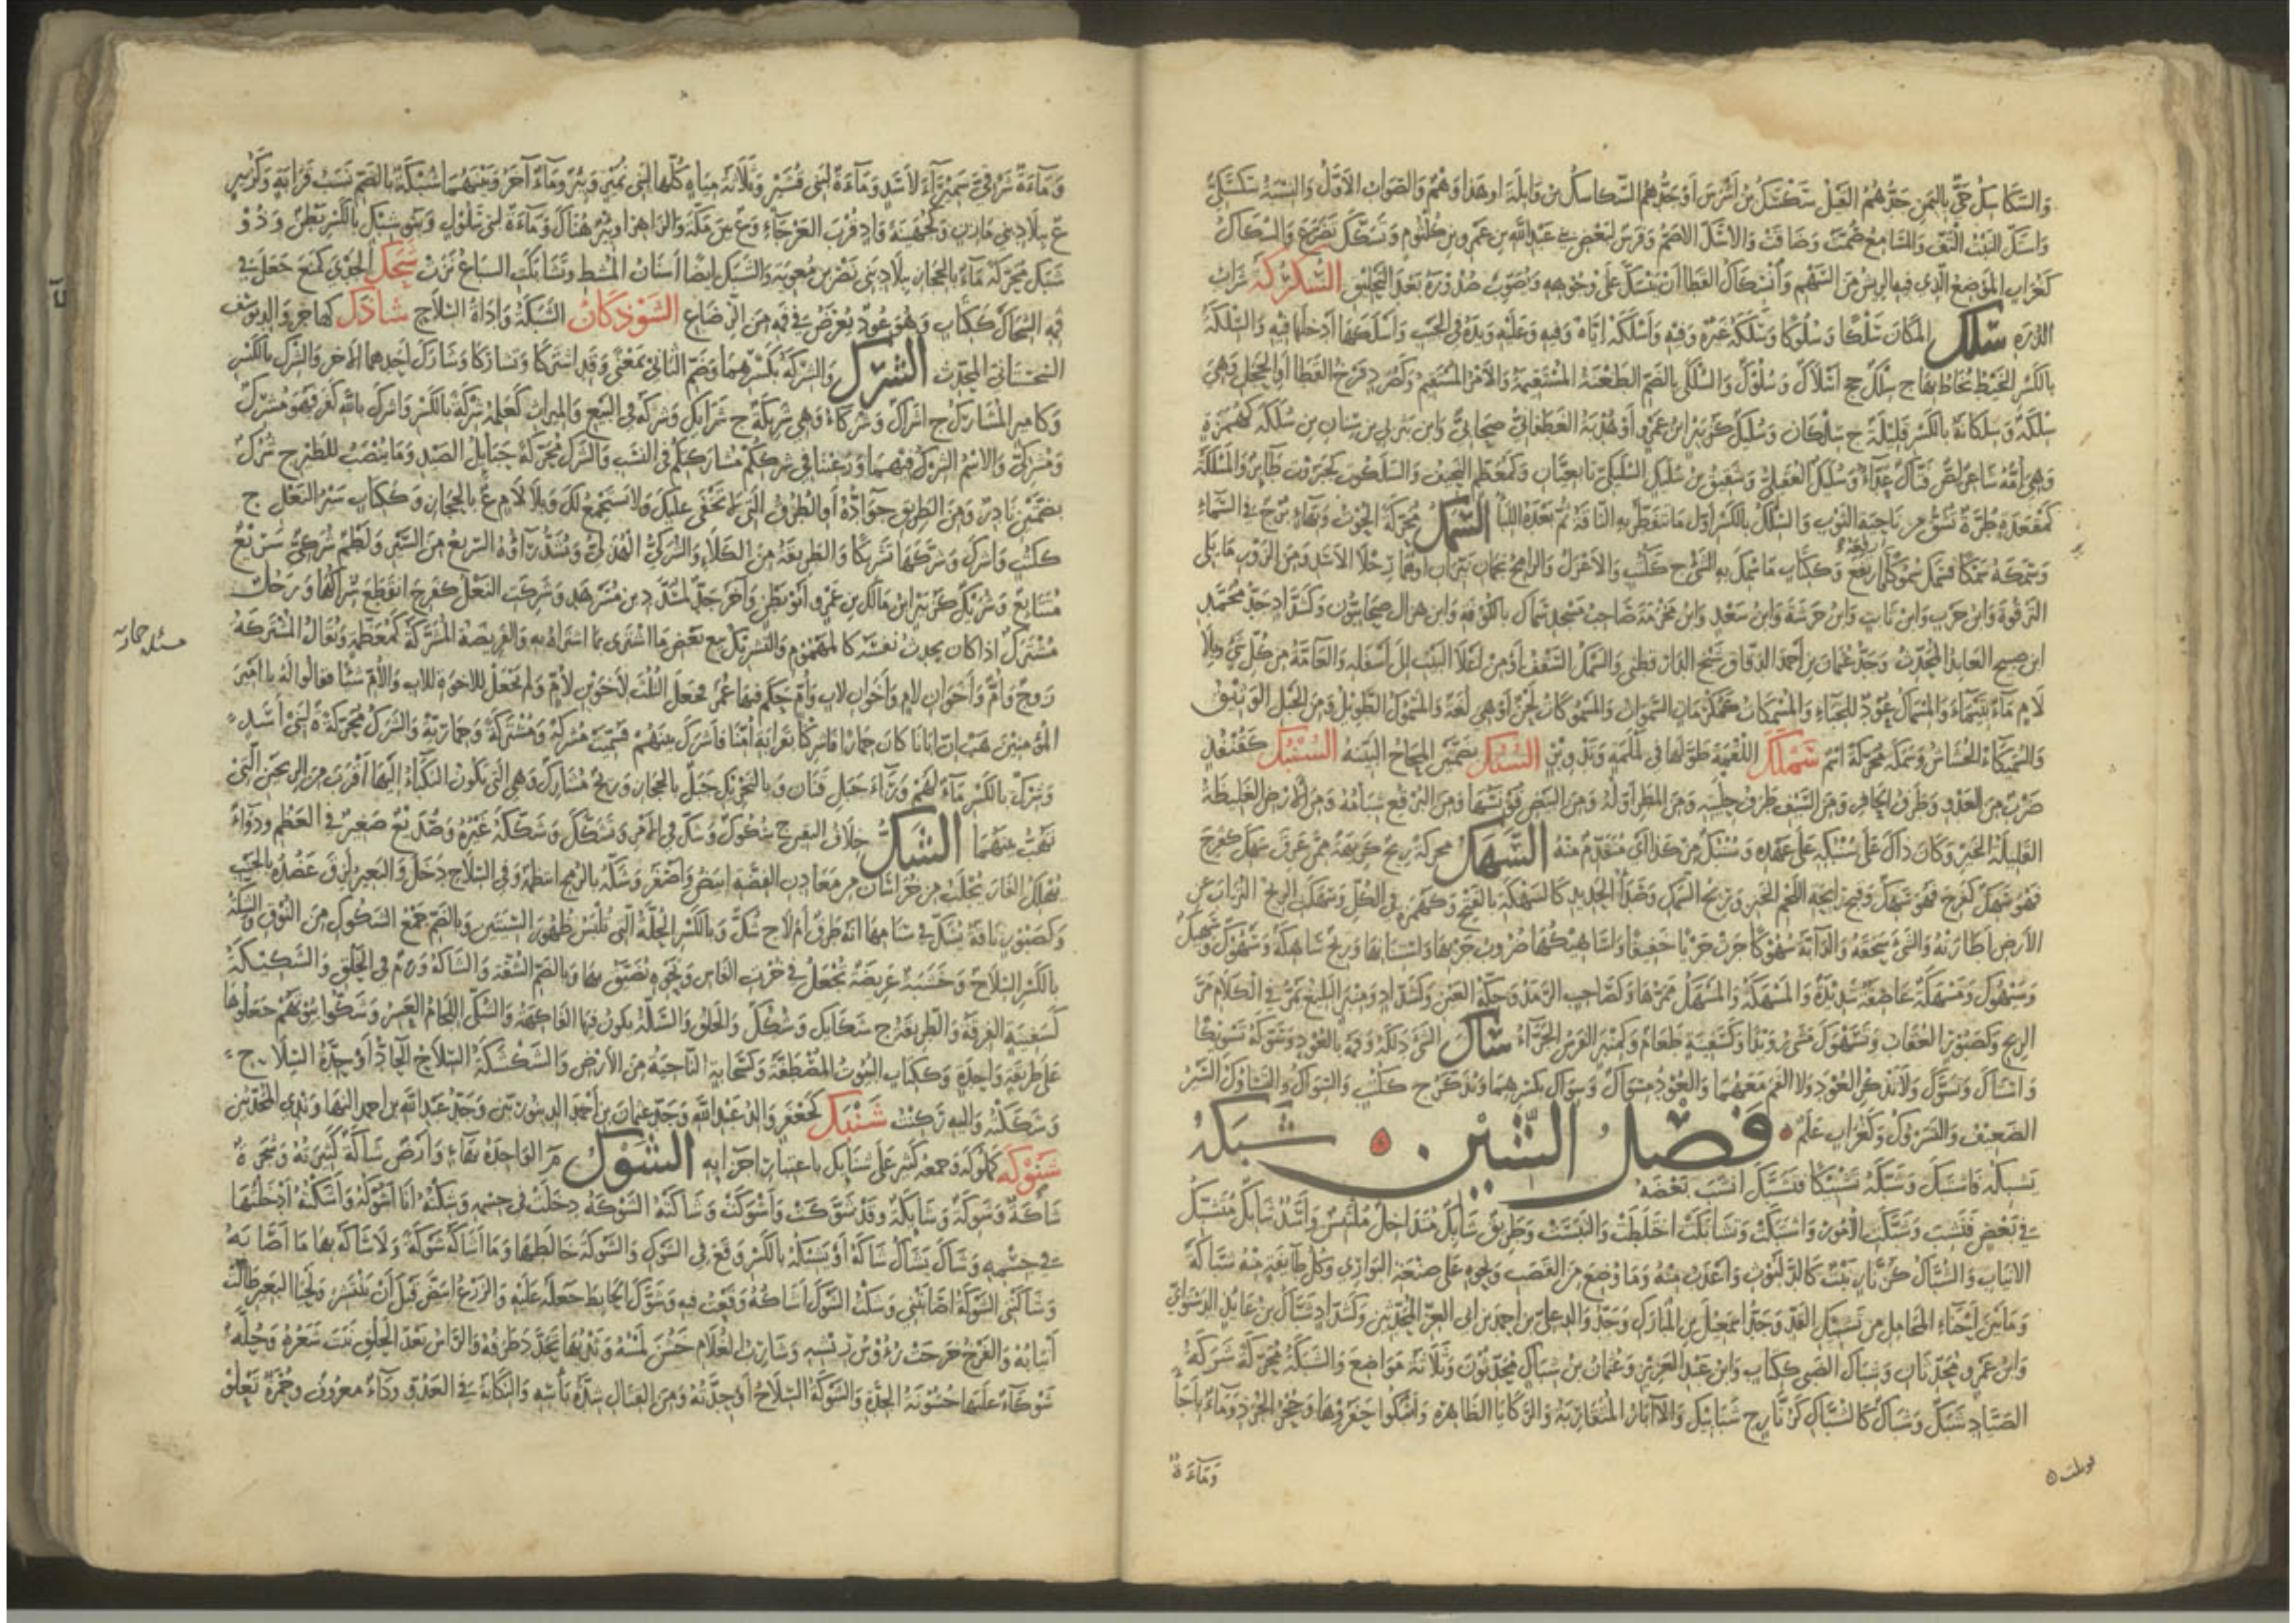 والسكاسك حي باليمن جدهم القيل سكسك بن أشرس أو جدهم السكاسك بن وائلة أو هذا وهم والصواب الأول والنسبة سكسكي
واستك النبت التف والمسامع صمت وضاقت والأسك الأصم وفرس لبعض بني عبد الله بن عمرو بن كلثوم وتسكك تضرع والسكاك
كغراب الموضع الذي فيه الريش من السهم السكركة شراب
الذرة سلك المكان سلكا وسلوكا وسلكه غيره وفيه وأسلكه إياه وفيه وعليه ويده في الجيب وأسلكها أدخلها فيه والسلكة
بالكسر الخيط يخاط به ج سلك جج أسلاك وسلوك والسلكى بالضم الطعنة المستقيمة والأمر المستقيم وكصرد فرخ القطا أو الحجل وهي
سلكة وسلكانة بالكسر قليلة ج سلكان وسليك كزبير ابن عمرو أو هدبة الغطفاني صحابي وابن يثربي بن سنان بن سلكة كهمزة
وهي أمه شاعر لص فتاك عداء وسليك العقيلي وشقيق بن سليك السليكي تابعيان وكمعظم النحيف والسلكوت كجبروت طائر والمسلكة
كمقعدة طرة تشق من ناحية الثوب والسلك بالكسر أول ما تتفطر به الناقة ثم بعده اللبأ السمك محركة الحوت وبهاء برج في السماء
وسمكه سمكا فسمك سموكا رفعه فارتفع وككتاب ما سمك به الشيء ج ككتب والأعزل والرامح نجمان نيران أو هما رجلا الأسد ومن الزور ما يلي
الترقوة وابن حرب وابن ثابت وابن خرشة وابن سعد وابن مخرمة صاحب مسجد سماك بالكوفة وابن هزال صحابيون وكشداد جد محمد
ابن صبيح العابد المحدث وجد عثمان بن أحمد الدقاق شيخ الدارقطني والسمك السقف أو من أعلا البيت إلى أسفله والقامة من كل شيء وبلا
لام ماء بتيماء والمسماك عود للخباء والمسمكات كمكرمات السموات والمسموكات لحن أو هي لغة والمسموك الطويل ومن الخيل الوثيق
والسميكاء الحساس وسمكة محركة اسم سملك اللقمة طولها في تدوير السنك بضمتين المحاج البينة السنبك كقنفذ
ضرب من العدو وطرف الحافر ومن السيف طرف حليته ومن المطر أوله ومن البيض قونسها ومن البرقع شبامه ومن الأرض الغليظة
القليلة الخير وكان ذاك على سنبكه على عهده وسنبك من كذا أي متقدم منه السهك محركة ريح كريهة ممن عرق سهك كفرح
فهو سهك وقبح رائحة اللحم الخنز وريح السمك وصدأ الحديد كالسهكة بالفتح وكهمزة في الكل وسهكت الريح التراب عن
الأرض أطارته والشيء سحقه والدابة سهوكا جرت جريا خفيفا وأساهيكها ضروب جريها واستنانها وريح ساهكة وسهوك وسيهك
وسيهوك ومسهكة عاصفة شديدة والمسهكة والمسهك ممرها وكصاحب الرمد وحكة العين وكشداد ومنبر البليغ يمر في الكلام مر
الريح وكصبور العقاب وتسهوك مشى رويدا وكسفينة طعام وكمنبر الفرس الجراء ساك الشيء دلكه وفمه بالعود وسوكه تسويكا
واستاك وتسوك ولا يذكر العود ولا الفم معهما والعود مسواك وسواك بكسرهما ويذكر ج ككتب والسواك والتساوك السير
الضعيف والتسروك وكغراب علم فصل الشين شبكه
يشبكه فاشتبك وشبكه تشبيكا فتشبك أنشب بعضه
في بعض فنشب وشبكت الأمور واشتبكت وتشابكت اختلطت والتبست وطريق شابك متداخل ملتبس وأسد شابك مشتبك
الأنياب والشباك كزنار نبت كالدلبوث وأعذب منه وما وضع من القصب ونحوه على صنعة البواري وكل طائفة منه شباكة
وما بين أحناء المحامل من تشبيك القد وجد إسمعيل بن المبارك وجد والد علي بن أحمد بن أبي العز المحدثين وكشداد شباك بن عائذ الدستوائي
وابن عمرو محدثان وشباك الضبي ككتاب وابن عبد العزيز وعثمان بن شباك محدثون وثلاثة مواضع والشبكة محركة شركة
الصياد شبك وشباك كالشباك كزنار ج شبابيك والآبار المتقاربة والركايا الظاهرة وأشبكوا حفروها وجحر الجرذ وماء بأجأ
وماءة
وماءة شرقي سميراء لأسد وماءة لبني قشير وثلاثة مياه كلها لبني نمير وبئر وماء آخر وبينهما شبكة بالضم نسب قرابة وكزبير
ع ببلاد بني مازن وكجهينة واد قرب العرجاء وع بين مكة والزاهر أو بئر هناك وماءة لبني سلول وبنو شبك بالكسر بطن وذو
شبك محركة ماء بالحجاز ببلاد بني نصر بن معوية والشبك أيضا أسنان المشط وتشابكت السباع نزت شحك الجدي كمنع جعل في
فمه الشحاك ككتاب وهو عود يعرض في فمه من الرضاع الشوذكان الشبكة وأداة السلاح شاذك كهاجر والد يوسف
السجستاني المحدث الشرك والشركة بكسرهما وضم الثاني بمعنى وقد اشتركا وتشاركا وشارك أحدهما الآخر والشرك بالكسر
وكأمير المشارك ج أشراك وشركاء وهي شريكة ج شرائك وشركه في البيع والميراث كعلمه شركة بالكسر وأشرك بالله كفر فهو مشرك
ومشركي والاسم الشرك فيهما ورغبنا في شرككم مشاركتكم في النسب والشرك محركة حبائل الصيد وما ينصب للطير ج شرك
بضمتين نادر ومن الطريق جواده أو الطرق التي لا تخفى عليك ولا تستجمع لك وبلا لام ع بالحجاز وككتاب سير النعل ج
ككتب وأشرك وشركها تشريكا والطريقة من الكلأ والشركي الهذلي وتشدد راؤه السريع من السير ولطم شركي سريع
متتابع وشريك كزبير ابن مالك بن عمرو أبو بطن وآخر جد لمسدد بن مسرهد وشركت النعل كفرح انقطع شراكها ورجل
مشترك إذا كان يحدث نفسه كالمهموم والتشريك بيع بعض ما اشترى بما اشتراه به والفريضة المشركة كمعظمة ويقال المشتركة
زوج وأم وأخوان لأم وأخوان لأب وأم حكم فيها عمر فجعل الثلث لأخوين لأم ولم يجعل للإخوة للأب والأم شيئا فقالوا له يا أمير
المؤمنين هب أن أبانا كان حمارا فأشركنا بقرابة أمنا فأشرك بينهم فسميت مشركة ومشتركة وحمارية والشرك محركة لبني أسد
وشرك بالكسر ماء لهم وراء جبل قنان وبالتحريك جبل بالحجاز وريح مشارك وهي التي تكون النكباء إليها أقرب من الريحين التي
تهب بينهما الشك خلاف اليقين ج شكوك وشك في الأمر وتشكك وشككه غيره وصديع صغير في العظم ودواء
يهلك الفار يجلب من خراسان من معادن الفضة أبيض وأصفر وشكه بالرمح انتظمه وفي السلاح دخل والبعير لزق عضده بالجنب
وكصبور ناقة يشك في سنامها أبه طرق أم لا ج شك وبالكسر الحلة التي تلبس ظهور السيتين وبالضم جمع الشكوك من النوق والشكة
بالكسر السلاح وخشبة عريضة تجعل في خرت الفأس ونحوه يضيق بها وبالضم الشقة والشاكة ورم في الحلق والشكيكة
كسفينة الفرقة والطريقة ج شكائك وشكك والخلق والسلة يكون فيها الفاكهة والشكي اللجام العسر وشكوا بيوتهم جعلوها
على طريقة واحدة وككتاب البيوت المصطفة وكسحابة الناحية من الأرض والشكشكة السلاح الحاد أو حدة السلاح
وشككت إليه ركنت شنبك كجعفر والد عبد الله وجد عثمان بن أحمد الدينوريين وجد عبد الله بن أحمد النهاوندي المحدثين
شنوكة كملوكة وجمعه كثير على شنائك باعتبار أجزائه الشوك م الواحدة بهاء وأرض شاكة كثيرته وشجرة
شاكة وشوكة وشائكة وقد شوكت وأشوكت وشاكته الشوكة دخلت في جسمه وشكته أنا أشوكه وأشكته أدخلتها
في جسمه وشاك يشاك شاكة وشيكة بالكسر وقع في الشوك والشوكة خالطها وما أشاكه شوكة ولا شاكه بها ما أصابه
وشاكتني الشوكة أصابتني وشكت الشوك أشاكه وقعت فيه وشوك الحائط جعله عليه والزرع ابيض قبل أن ينتشر ولحيا البعير طالت
أنيابه والفرخ خرجت رؤوس ريشه وشارب الغلام خشن لمسه وثديها تحدد طرفه والرأس بعد الحلق نبت شعره وحلة
شوكاء عليها خشونة الجدة والشوكة السلاح أو حدته ومن القتال شدة بأسه والنكاية في العدو وداء معروف وحمرة تعلو
مسئله حماريه